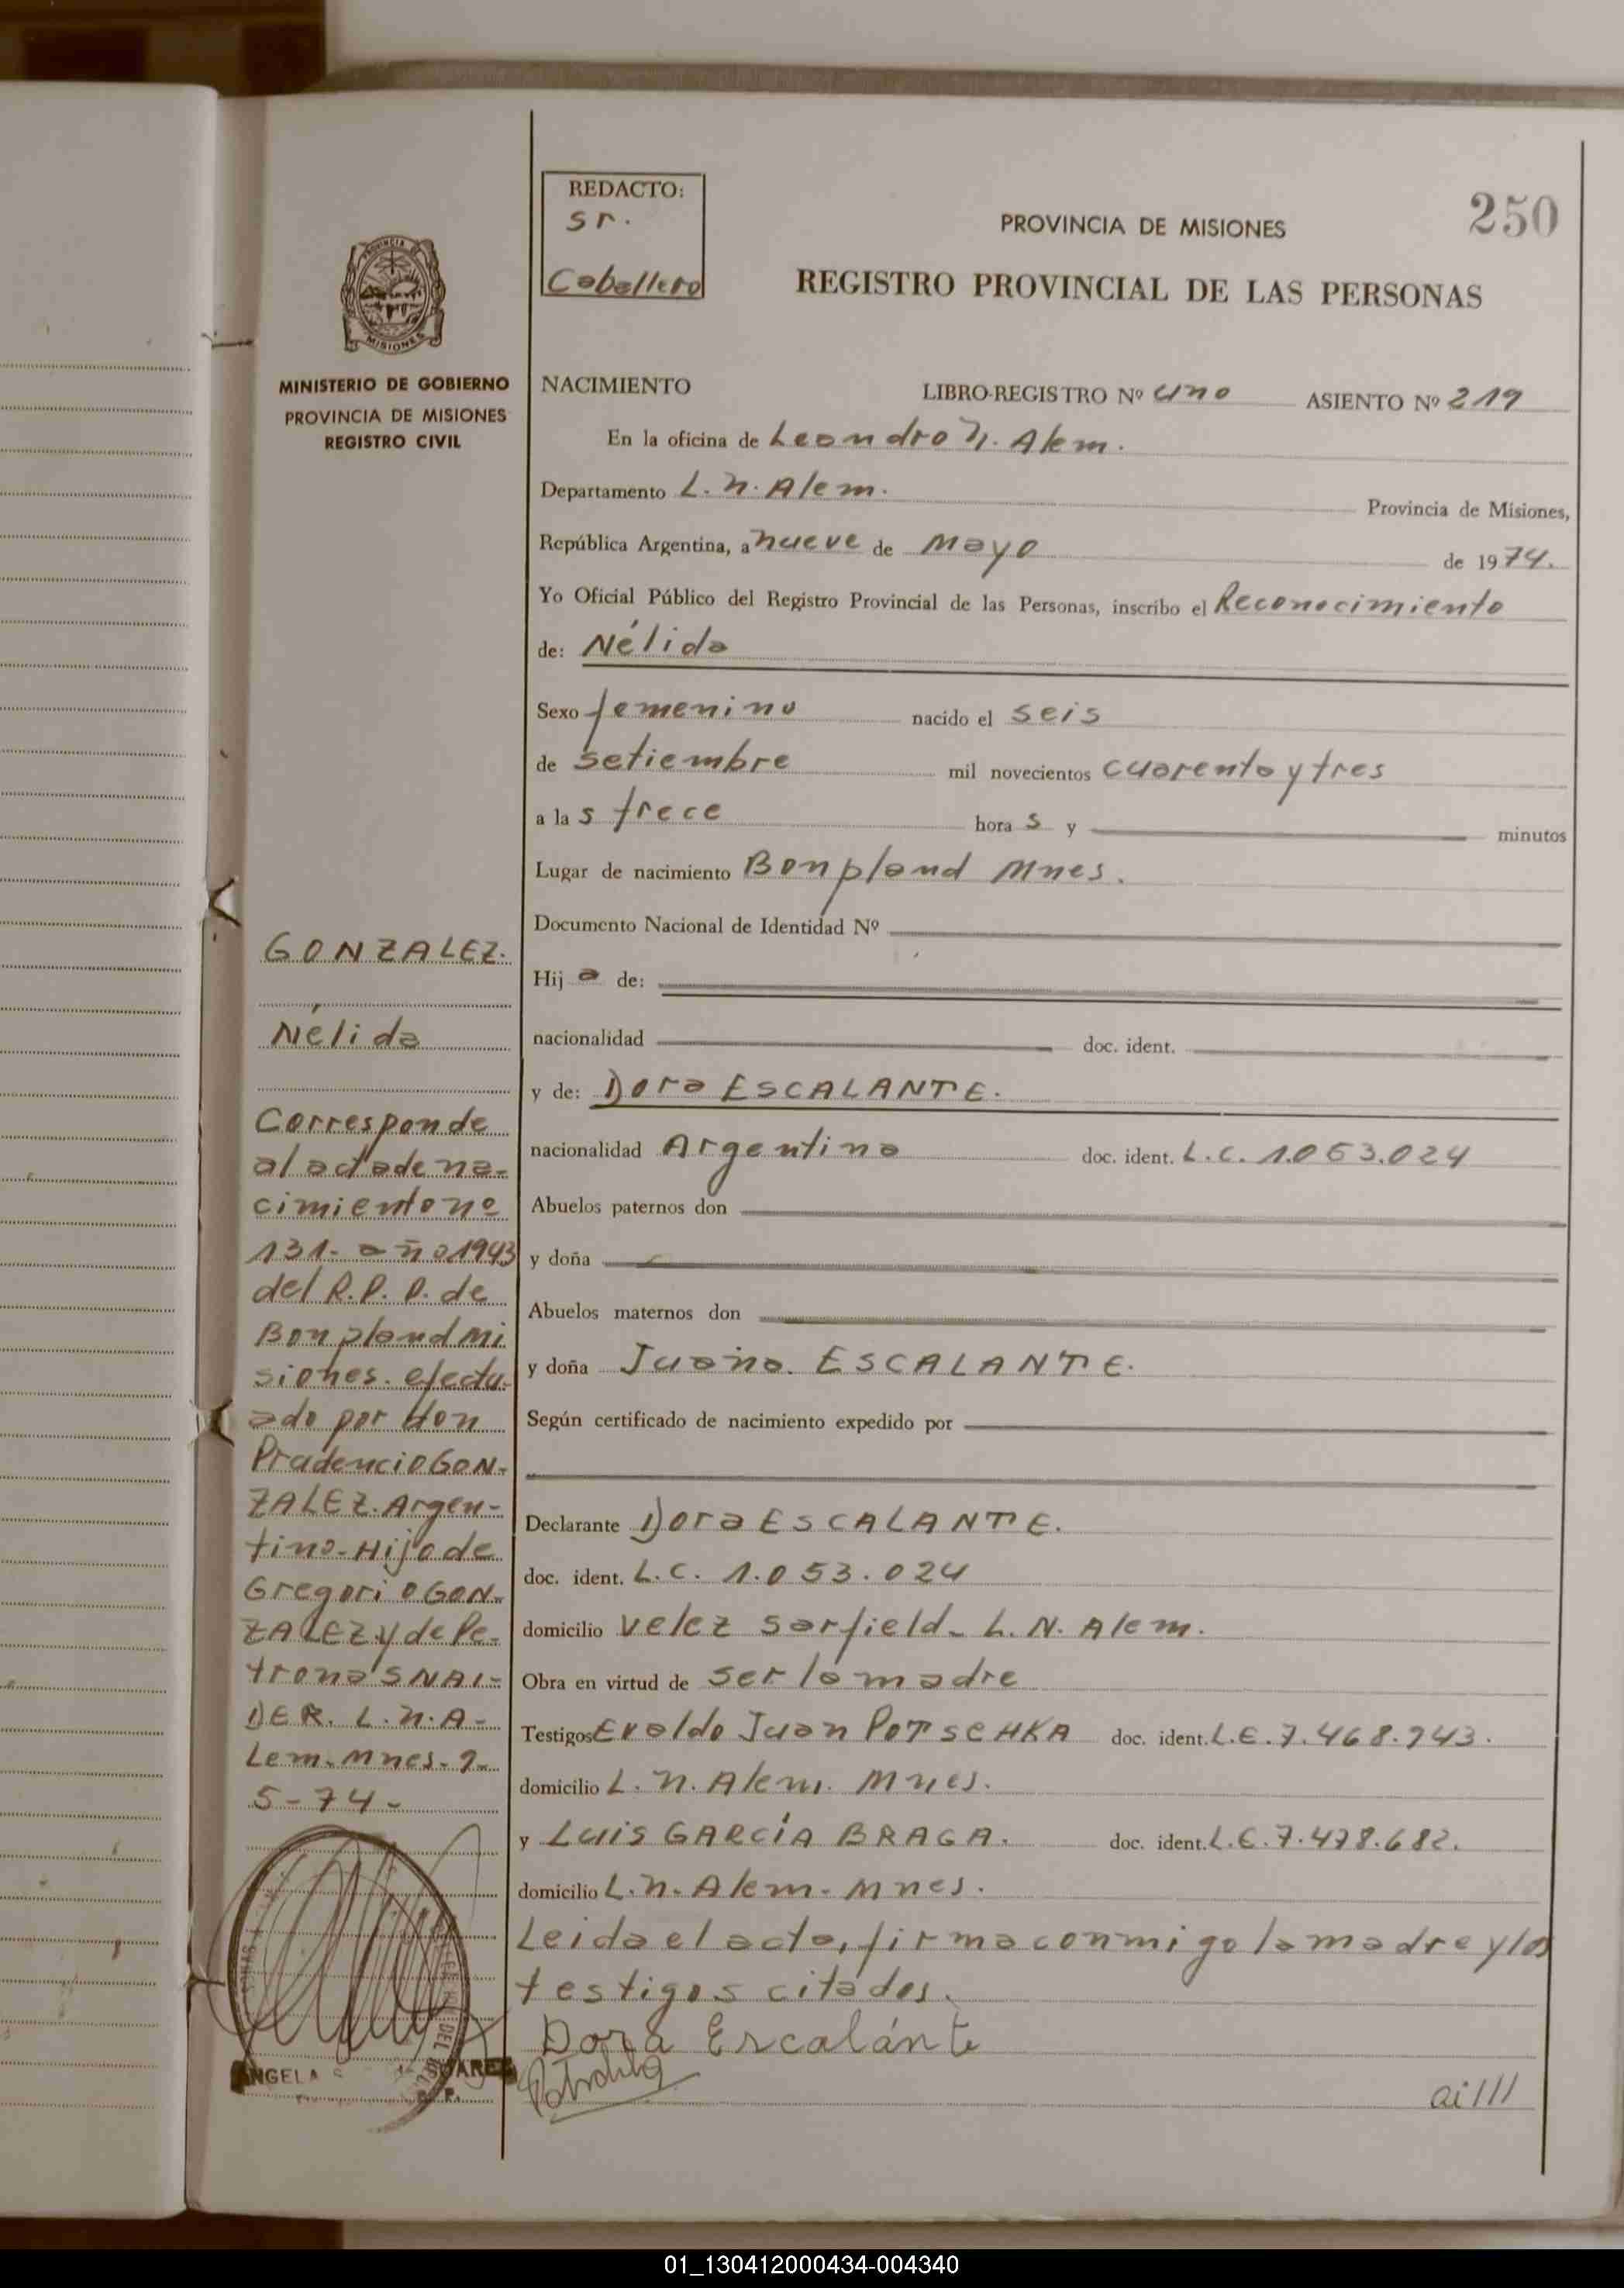 REDACTO:
Sr.
Caballero
PROVINCIA DE MISIONES
250
REGISTRO PROVINCIAL DE LAS PERSONAS
PROVINCIA DE
MISIONES
MINISTERIO DE GOBIERNO
PROVINCIA DE MISIONES
REGISTRO CIVIL
NACIMIENTO LIBRO-REGISTRO Nº uno ASIENTO Nº 219
En la oficina de Leandro N. Alem.
Departamento L. N. Alem. Provincia de Misiones,
República Argentina, a nueve de Mayo de 1974.
Yo Oficial Público del Registro Provincial de las Personas, inscribo el Reconocimiento
de: Nélida
Sexo femenino nacido el seis
de setiembre mil novecientos cuarenta y tres
a las trece horas y minutos
Lugar de nacimiento Bonpland Mnes.
Documento Nacional de Identidad Nº
Hija de:
nacionalidad doc. ident.
y de: Dora ESCALANTE.
nacionalidad Argentina doc. ident. L.C. 1.053.024
Abuelos paternos don
y doña
Abuelos maternos don
y doña Juana. ESCALANTE.
Según certificado de nacimiento expedido por
Declarante Dora ESCALANTE.
doc. ident. L.C. 1.053.024
domicilio Velez Sarfield- L. N. Alem.
Obra en virtud de ser la madre
Testigos Evaldo Juan POTSCHKA doc. ident. L.E. 7.468.943.
domicilio L. N. Alem. Mnes.
y LUIS GARCÍA BRAGA. doc. ident. L.E. 7.478.682.
domicilio L. N. Alem- Mnes.
Leida el acta, firma conmigo la madre y los
testigos citados.
Dora Escalánte
ai///
GONZALEZ.
Nélida
Corresponde
al acta de na-
cimiento nº
131- año 1943
del R.P.P. de
Bonpland Mi
siones. efectu-
ado por don
Prudencio GON-
ZALEZ. Argen-
tino- Hijo de
Gregorio GON-
ZALEZ y de Pe-
trona SNAI-
DER. L. N. A-
lem- Mnes- 9-
5-74-
ANGELA
01_130412000434-004340